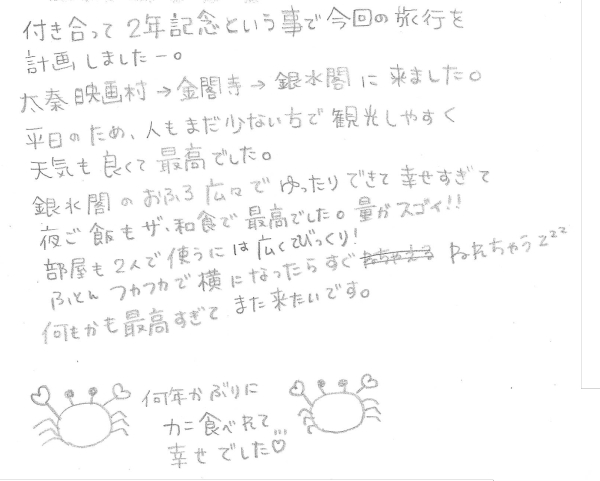 付き合って2年記念という事で今回の旅行を
計画しましたー。
太秦映画村→金閣寺→銀水閣に来ました。
平日のため、人もまだ少ない方で観光しやすく
天気も良くて最高でした。
銀水閣のおふろ広々でゆったりできて幸せすぎて
夜ご飯もザ、和食で最高でした。量がスゴイ!!
部屋も2人で使うには広くてびっくり!
ふとんフカフカで横になったらすぐねれちゃうzzz
何もかも最高すぎてまた来たいです。
何年かぶりに
カニ食べれて...
幸せでした♡